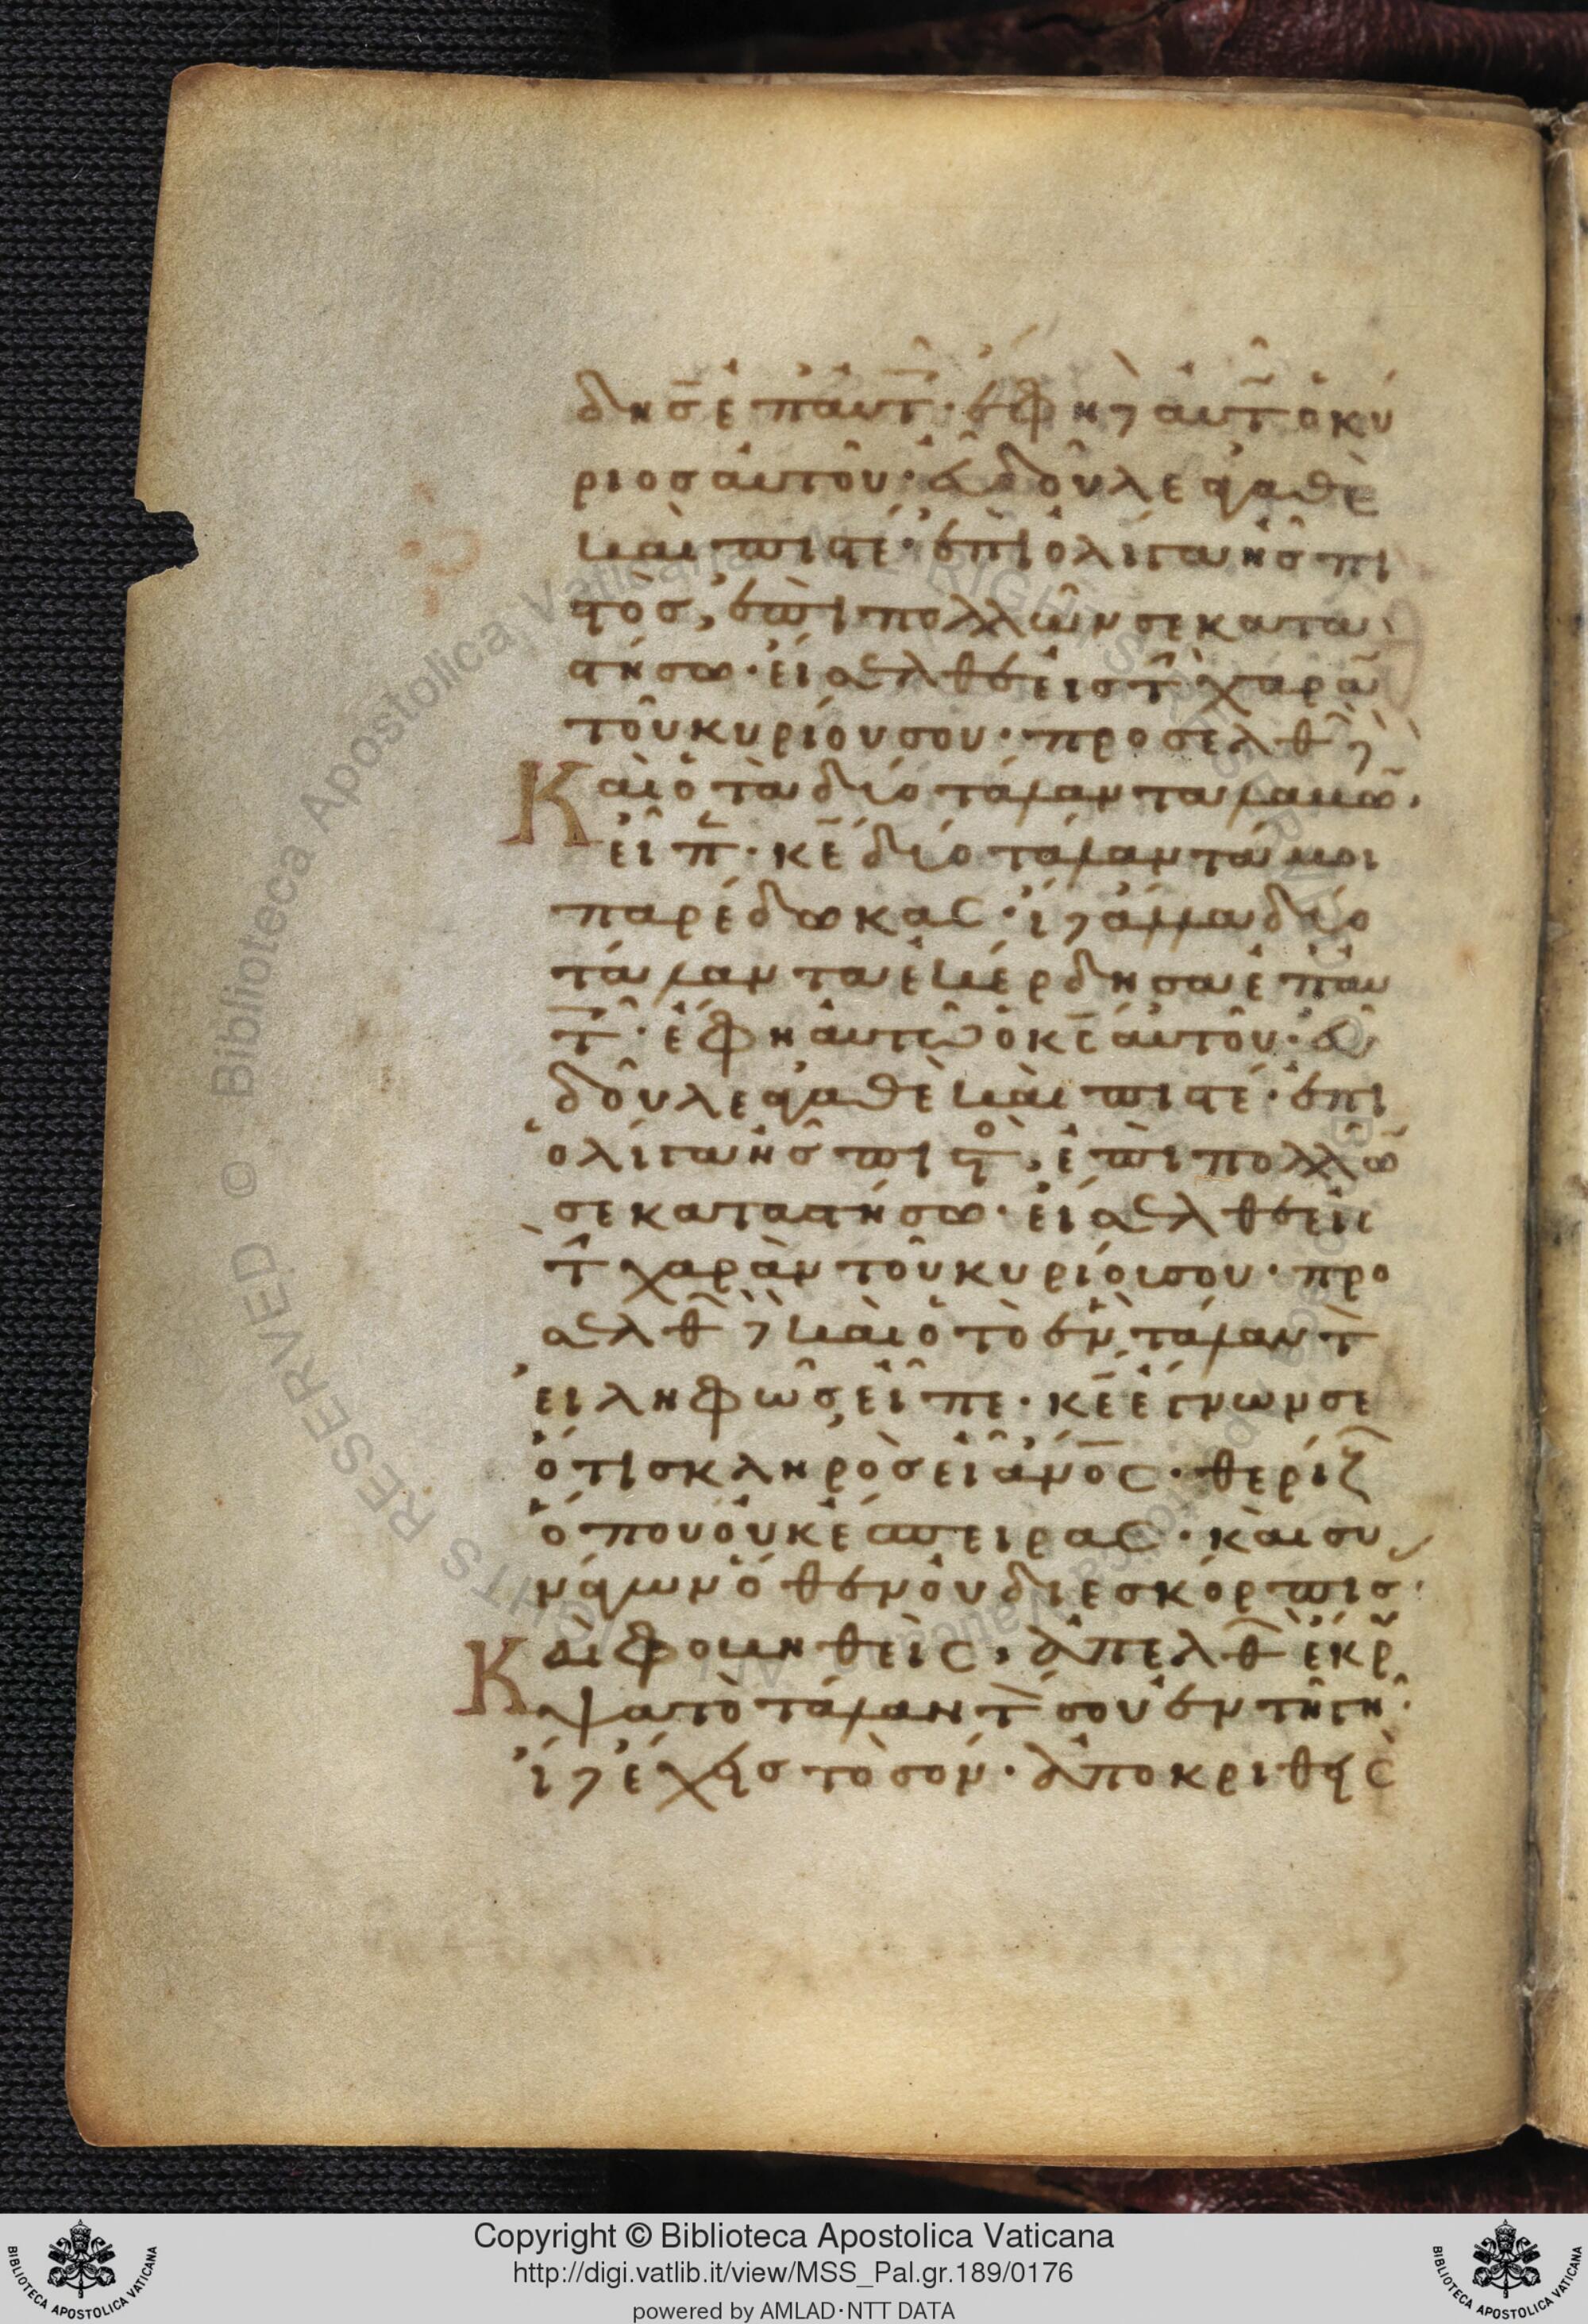 δησ ἐπ αὐτ· ἔφη δὲ αὐτ ὁ κύ
ριος αὐτοῦ· εὖ δοῦλε ἀγαθὲ
καὶ πιστέ· ἐπὶ ὀλίγα ἦς πι
στὸς, ἐπὶ πολλῶν σε κατα
στήσω· εἴσελθε εἰς τ χαρὰ
τοῦ κυρίου σου· προσελθ δὲ
Καὶ ὁ τὰ δύο τάλαντα λαβὼ·
εἶπ· κε δύο τάλαντά μοι
παρέδωκας· ἴδε ἄλλα δύο
τάλαντα ἐκέρδησα ἐπ αὐ
τ· ἔφη αὐτῶ ὁ κς αὐτοῦ· εὖ
δοῦλε ἀγαθὲ καὶ πιστέ· ἐπὶ
ὀλίγα ἦς πιστο, ἐπὶ πολλῶ
σε καταστήσω· εἴσελθε εἰς
τ χαρὰν τοῦ κυρίου σου· προ
σελθ δὲ καὶ ὁ τὸ ἓν τάλαντ
εἰληφὼς, εἶπε· κε ἔγνων σε
ὅτι σκληρὸς εἶ ἀνος· θερίζ
ὅπου οὐκ ἔσπειρας· καὶ συ
νάγων ὅθεν οὐ διεσκόρπισ·
Καὶ φοβηθεὶς, ἀπελθ ἔκρ
υψα τὸ τάλαντ σου ἐν τῆ γῆ·
ἴδε ἔχεις τὸ σόν· ἀποκριθεὶς
Copyright © Biblioteca Apostolica Vaticana
http://digi.vatlib.it/view/MSS_Pal.gr.189/0176
powered by AMLAD·NTT DATA
BIBLIOTECA APOSTOLICA VATICANA
BIBLIOTECA APOSTOLICA VATICANA